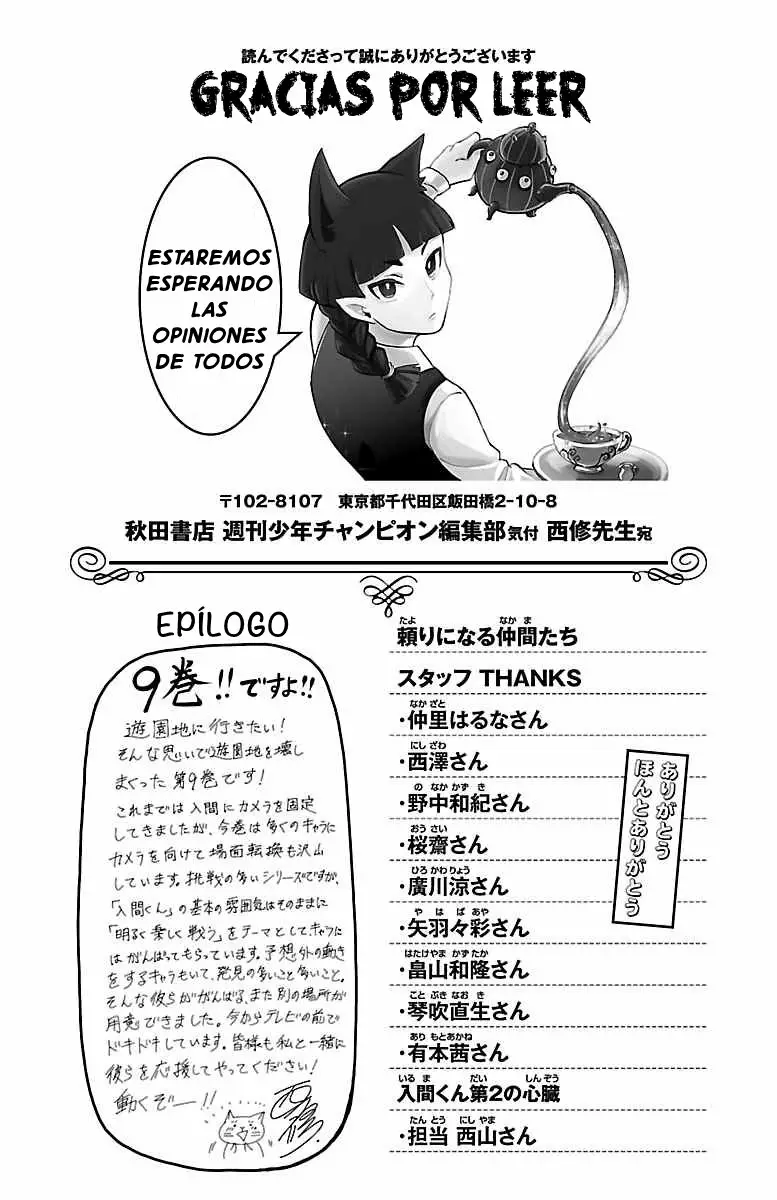 読んでくださって誠にありがとうございます
GRACIAS POR LEER
ESTAREMOS
ESPERANDO
LAS
OPINIONES
DE TODOS
〒102-8107 東京都千代田区飯田橋2-10-8
秋田書店 週刊少年チャンピオン編集部気付 西修先生宛
EPÍLOGO
9巻!!ですよ!!
遊園地に行きたい!
そんな思いで遊園地を壊し
まくった第9巻です!
これまでは入間にカメラを固定
してきましたが、今巻は多くのキャラに
カメラを向けて場面転換も沢山
しています。挑戦の多いシリーズですが、
「入間くん」の基本の雰囲気はそのままに
「明るく楽しく戦う」をテーマとしてキャラに
はがんばってもらっています。予想外の動き
をするキャラもいて、発見の多いこと多いこと。
そんな彼らががんばる、また別の場所が
用意できました。今からテレビの前で
ドキドキしています。皆様も私と一緒に
彼らを応援してやってください!
動くぞー!!
西修
たよ なかま
頼りになる仲間たち
スタッフ THANKS
なかざと
・仲里はるなさん
にしざわ
・西澤さん
のなかかずき
・野中和紀さん
おうさい
・桜齋さん
ひろかわりょう
・廣川涼さん
やはばあや
・矢羽々彩さん
はたけやまかずたか
・畠山和隆さん
ことぶきなおき
・琴吹直生さん
ありもとあかね
・有本茜さん
いるま だい しんぞう
入間くん第2の心臓
たんとう にしやま
・担当 西山さん
ありがとう
ほんとありがとう